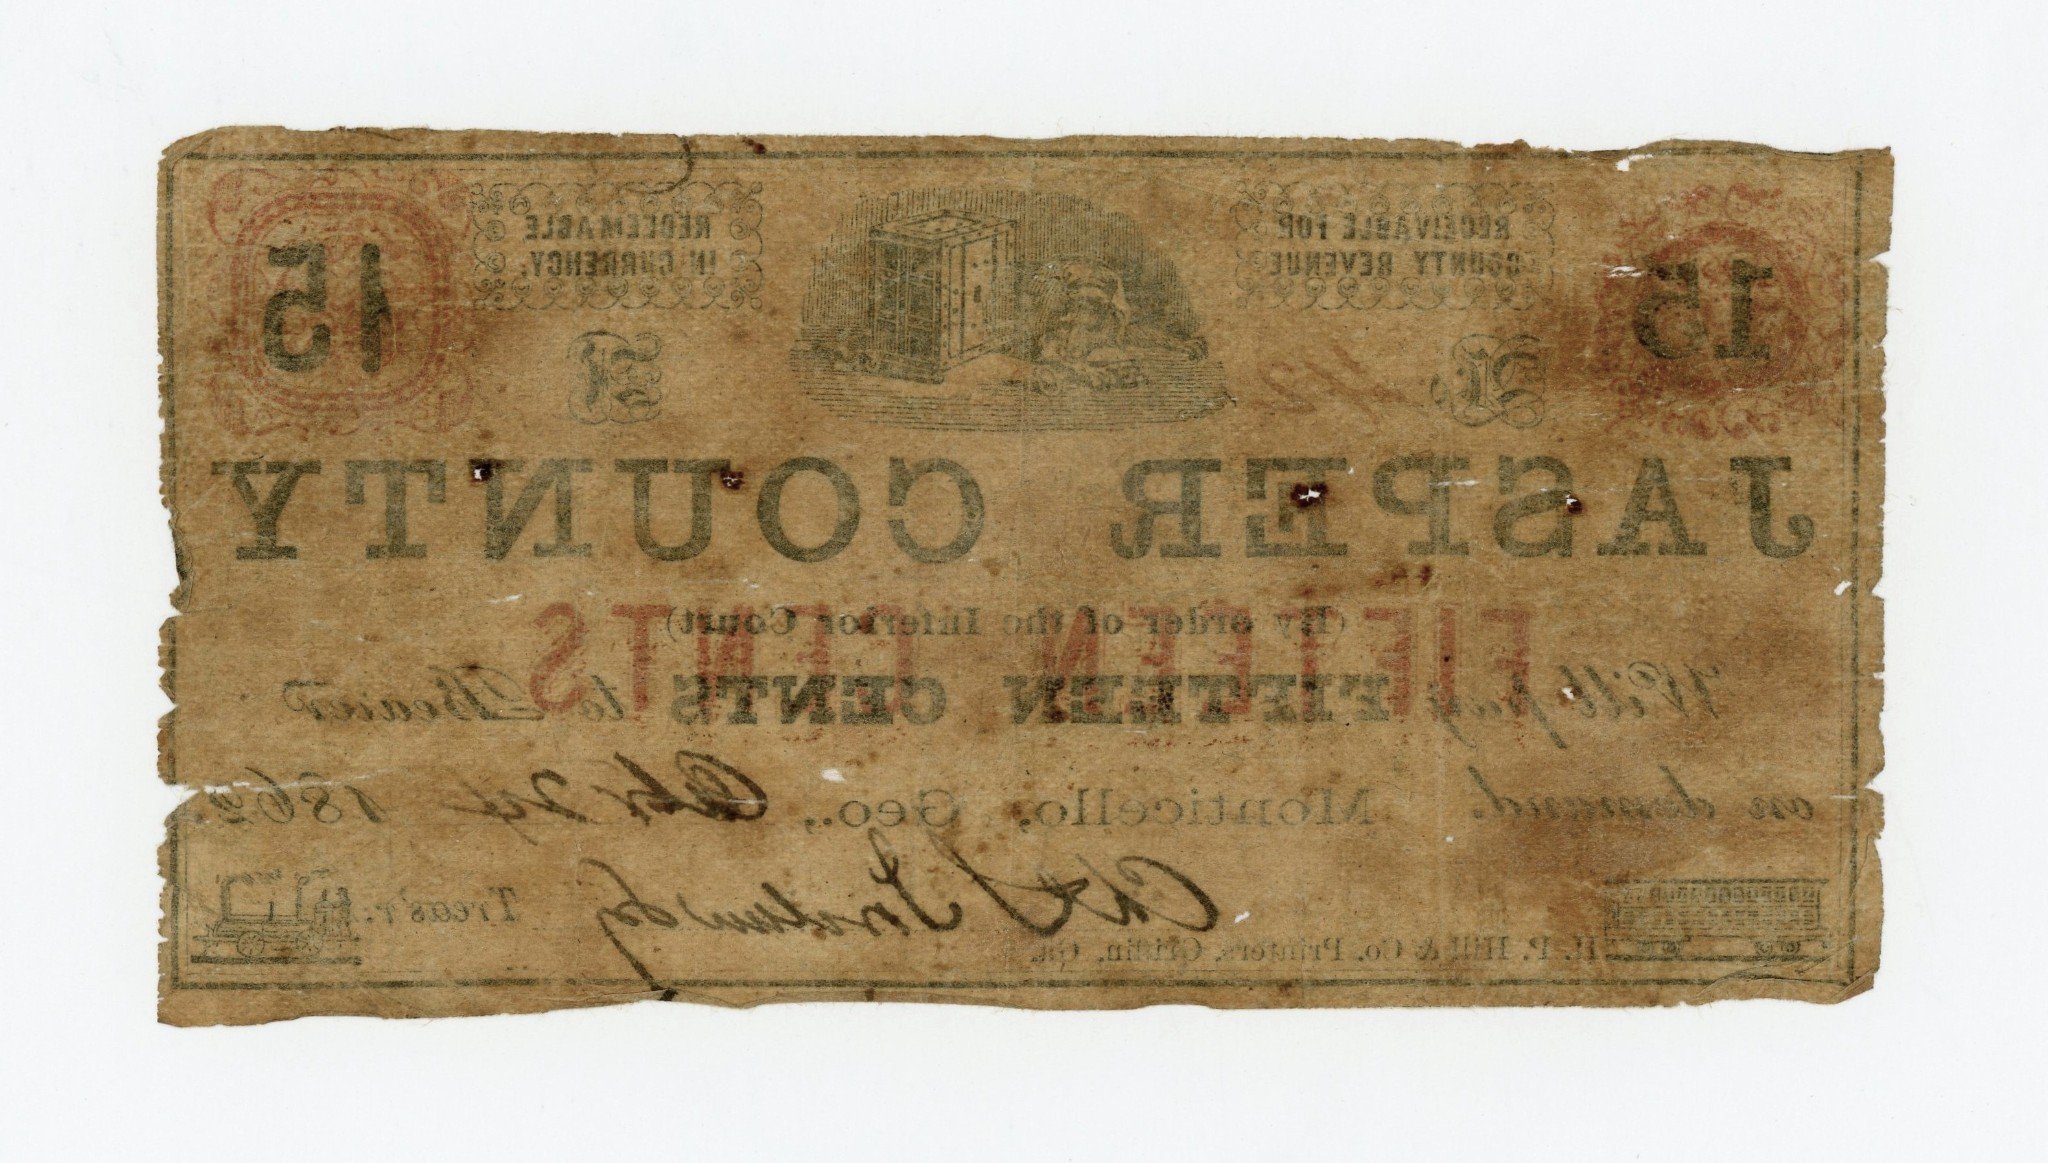 15 RECEIVABLE FOR REDEEMABLE 15
COUNTY REVENUE IN CURRENCY.
JASPER COUNTY
(By order of the Inferior Court)
FIFTEEN CENTS
Will pay FIFTEEN CENTS to Bearer
on demand. Monticello, Geo., Oct 24 1862
Treas'r.
H. P. Hill & Co. Printers, Griffin, Ga.